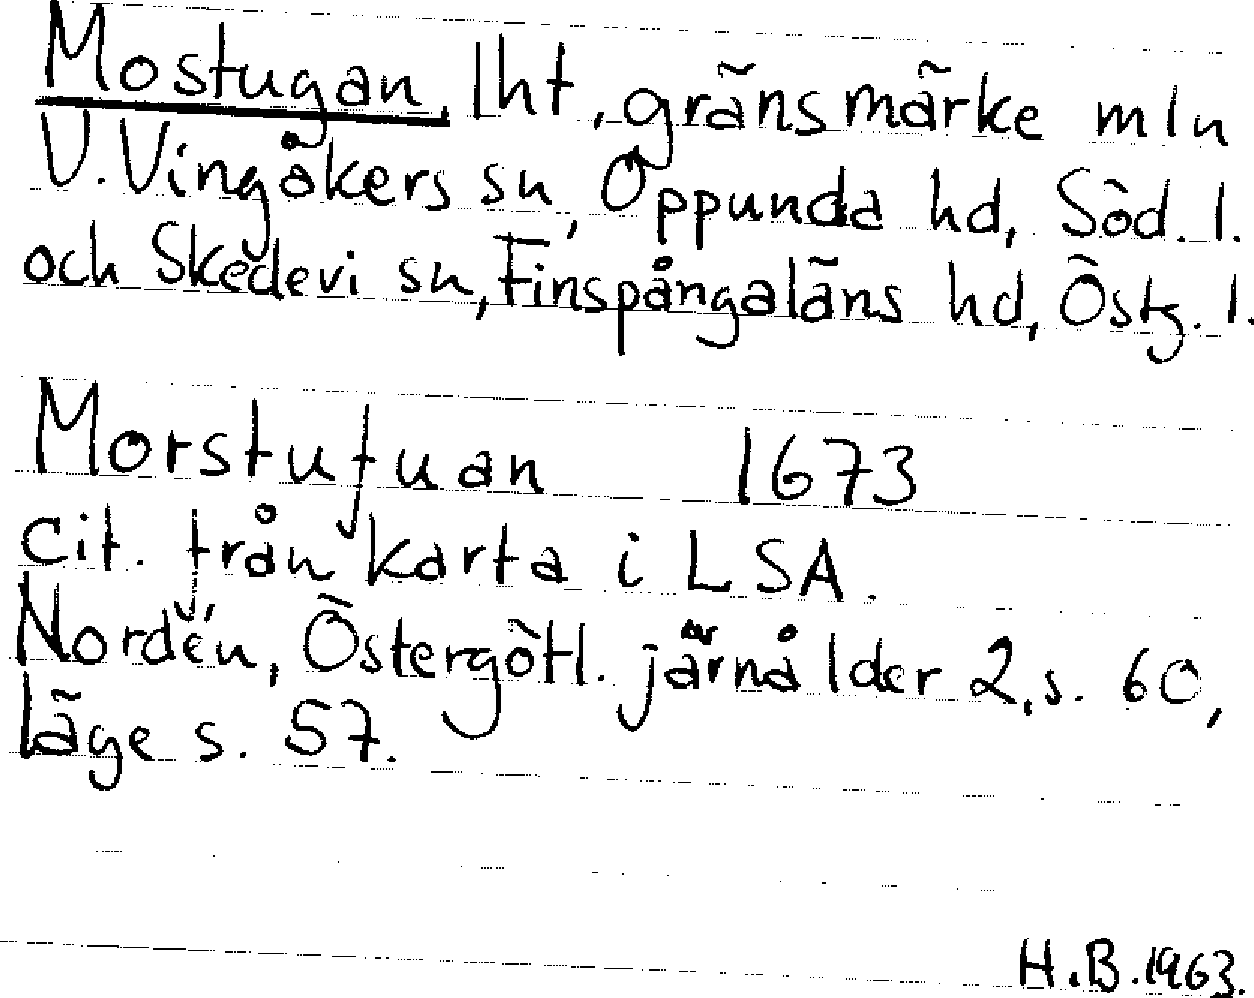 Mostugan, lht, gränsmärke mln
V. Vingåkers sn, Oppunda hd, Söd. l.
och Skedevi sn, Finspångaläns hd, Östg. l.
Morstufuan 1673
cit. från karta i LSA.
Nordén, Östergötl. järnålder 2, s. 60,
läge s. 57.
H.B. 1963.